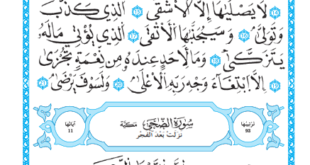 لَا يَصْلَىٰهَآ إِلَّا ٱلْأَشْقَى ١٥ ٱلَّذِى كَذَّبَ
وَتَوَلَّىٰ ١٦ وَسَيُجَنَّبُهَا ٱلْأَتْقَى ١٧ ٱلَّذِى يُؤْتِى مَالَهُۥ
يَتَزَكَّىٰ ١٨ وَمَا لِأَحَدٍ عِندَهُۥ مِن نِّعْمَةٍ تُجْزَىٰٓ
١٩ إِلَّا ٱبْتِغَآءَ وَجْهِ رَبِّهِ ٱلْأَعْلَىٰ ٢٠ وَلَسَوْفَ يَرْضَىٰ ٢١
ترتيبها
سُورَةُ الضُّحَىٰ مَكِّيَّة
نزلت بعد الفجر
آياتها
11